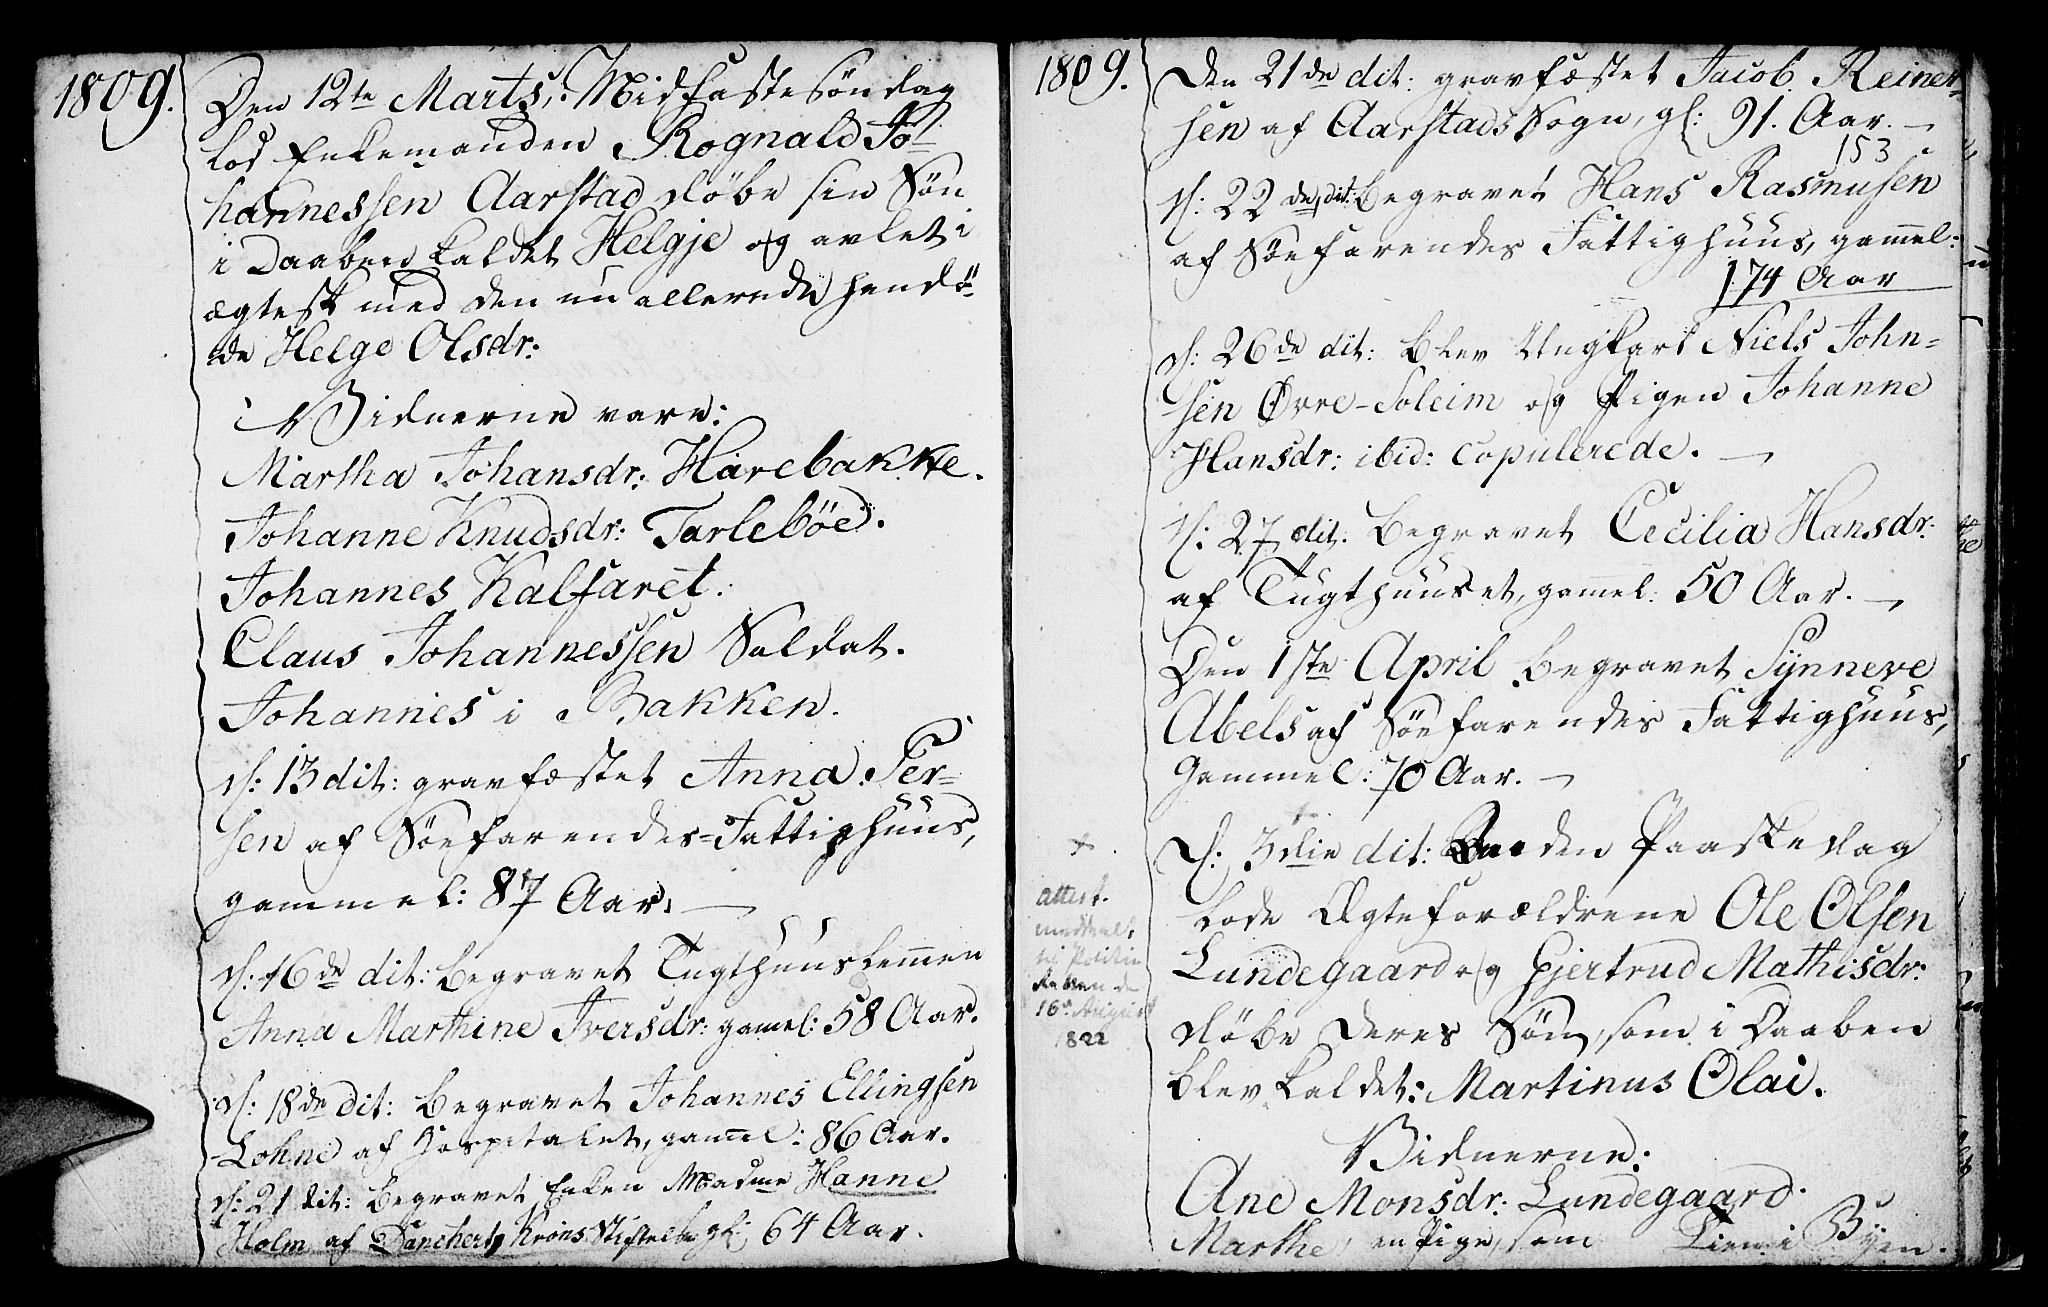 1809.
Den 12te Marts, Midfastesøndag
lod Enkemanden Rognald Jo-
hannessen Aarstad døbe sin Søn
i Daaben kaldet Helgje og avlet i
ægtesk med den nu allerede hendö-
de Helge Olsdr:
Vidnerne vare:
Martha Johansdr: Harebakke.
Johanne Knudsdr: Tarlebøe.
Johannes Kalfaret.
Claus Johannessen Soldat.
Johannes i Bakken.
d: 13 dit: gravfæstet Anna Per-
sen af Söefarendes-Fattighuus,
gammel: 87 Aar.
d: 16de dit: begravet Tugthuuslemmen
Anna Marthine Iversdr: gamel: 58 Aar.
d: 18de dit: begravet Johannes Ellingsen
Lohne af Hospitalet, gamel: 86 Aar.
d: 21 dit: begravet Enken Madme Hanne
Holm af Danchert Krons Stiftelse gl: 64 Aar.
1809.
Den 21de dit: gravfæstet Jacob Reiner-
sen af Aarstads Sogn, gl: 91. Aar.
153
d: 22de dit: begravet Hans Rasmusen
af Söefarendes Fattighuus, gamel:
74 Aar
d: 26de dit: blev Ungkarl Niels John-
sen Øvre-Soleim og Pigen Johanne
Hansdr: ibid: copulerede.
d: 27 dit. begravet Cecilia Hansdr:
af Tugthuuset, gamel: 50 Aar.
Den 1ste April begravet Synneve
Abels af Söefarendes Fattighuus,
Gammel: 70 Aar.
D: 3die dit: Anden Paaskedag
lode Ægteforældrene Ole Olsen
Lundegaard og Gjertrud Mathisdr:
döbe deres Sön, som i Daaben
blev kaldet: Martinus Olai.
Vidnerne:
Ane Monsdr: Lundegaard.
Marthe, en Pige, som Tien: i Byen.
attest.
meddeelt
til Politie
Retten de
16de August
1822